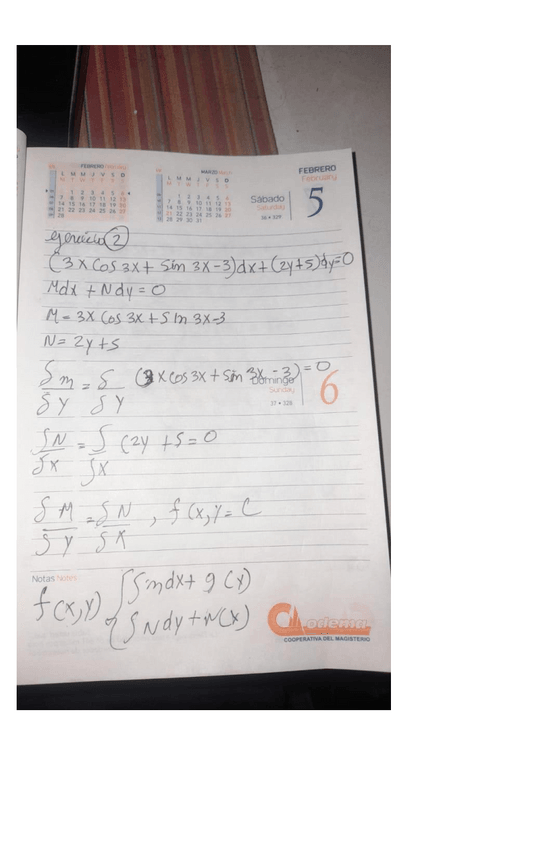 FEBRERO
MARZO
FEBRERO
February
5
Sábado
Saturday
36 • 329
L M M J V S D
1 2 3 4 5 6
7 8 9 10 11 12 13
14 15 16 17 18 19 20
21 22 23 24 25 26 27
28
L M M J V S D
1 2 3 4 5 6
7 8 9 10 11 12 13
14 15 16 17 18 19 20
21 22 23 24 25 26 27
28 29 30 31
ejercicio 2
(3x Cos 3x + Sin 3x-3)dx+(2y+5)dy=0
Mdx + Ndy = 0
M = 3x Cos 3x + Sin 3x-3
N= 2y+5
δm/δy = δ/δy (3x cos 3x + Sin 3x - 3) = 0
Domingo
Sunday
6
37 • 328
δN/δx = δ/δx (2y + 5 = 0
δM/δy = δN/δx , f (x,y = C
Notas Notes
f(x,y) { ∫ mdx + g (x)
∫ Ndy + N(x)
Codema
COOPERATIVA DEL MAGISTERIO